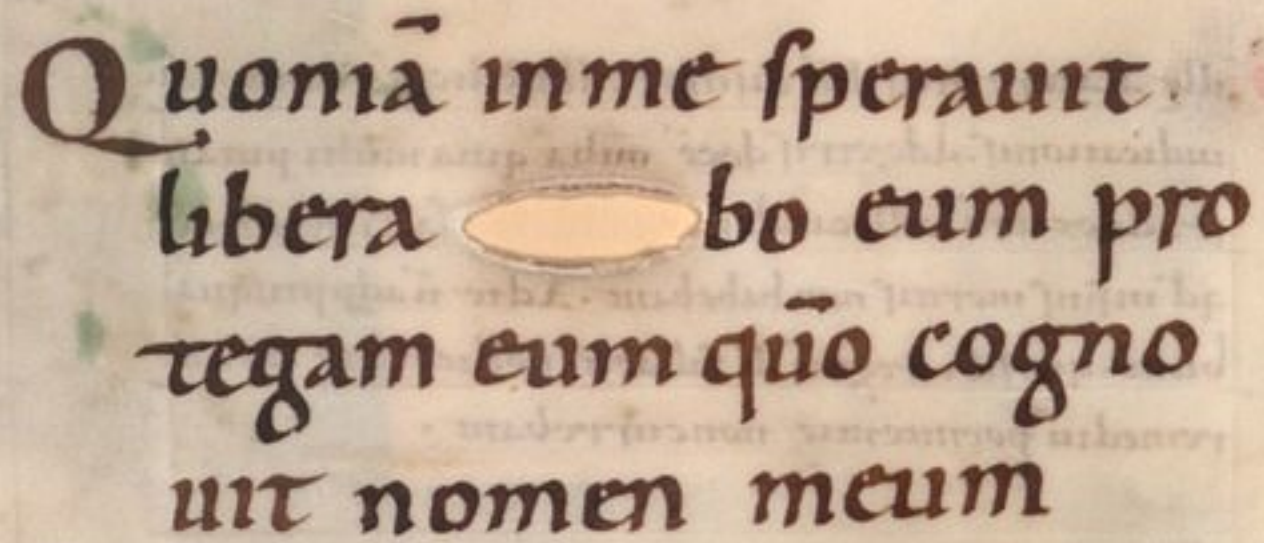 Quoniā in me sperauit.
libera bo eum pro
tegam eum qūo cogno
uit nomen meum